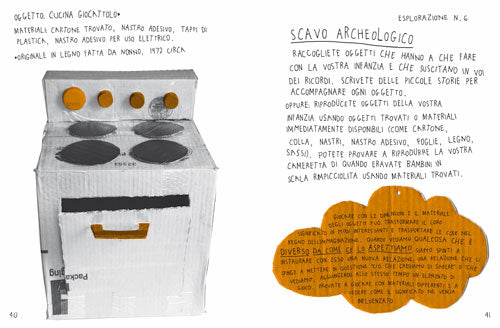 OGGETTO: CUCINA GIOCATTOLO•
MATERIALI: CARTONE TROVATO, NASTRO ADESIVO, TAPPI DI
PLASTICA, NASTRO ADESIVO PER USO ELETTRICO.
•ORIGINALE IN LEGNO FATTA DA NONNO, 1972 CIRCA
Packa
ging
40
ESPLORAZIONE N. 6
SCAVO ARCHEOLOGICO
RACCOGLIETE OGGETTI CHE HANNO A CHE FARE
CON LA VOSTRA INFANZIA E CHE SUSCITANO IN VOI
DEI RICORDI. SCRIVETE DELLE PICCOLE STORIE PER
ACCOMPAGNARE OGNI OGGETTO.
OPPURE: RIPRODUCETE OGGETTI DELLA VOSTRA
INFANZIA USANDO OGGETTI TROVATI O MATERIALI
IMMEDIATAMENTE DISPONIBILI (COME CARTONE,
COLLA, NASTRI, NASTRO ADESIVO, FOGLIE, LEGNO,
SASSI). POTETE PROVARE A RIPRODURRE LA VOSTRA
CAMERETTA DI QUANDO ERAVATE BAMBINI IN
SCALA RIMPICCIOLITA USANDO MATERIALI TROVATI.
GIOCARE CON LE DIMENSIONI E IL MATERIALE
DEGLI OGGETTI PUÒ TRASFORMARE IL LORO
SIGNIFICATO IN MODI INTERESSANTI E TRASPORTARE LE COSE NEL
REGNO DELL'IMMAGINAZIONE. QUANDO VEDIAMO QUALCOSA CHE È
DIVERSO DA COME CE LO ASPETTIAMO SIAMO SPINTI A
INSTAURARE CON ESSO UNA NUOVA RELAZIONE, UNA RELAZIONE CHE CI
SPINGE A METTERE IN QUESTIONE "CIÒ CHE CREDIAMO DI SAPERE" O "CHE
VEDIAMO", AGGIUNGENDO ALLO STESSO TEMPO UN ELEMENTO DI
GIOCO. PROVATE A GIOCARE CON MATERIALI DIFFERENTI E A
VEDERE COME IL SIGNIFICATO NE VENGA
INFLUENZATO.
41